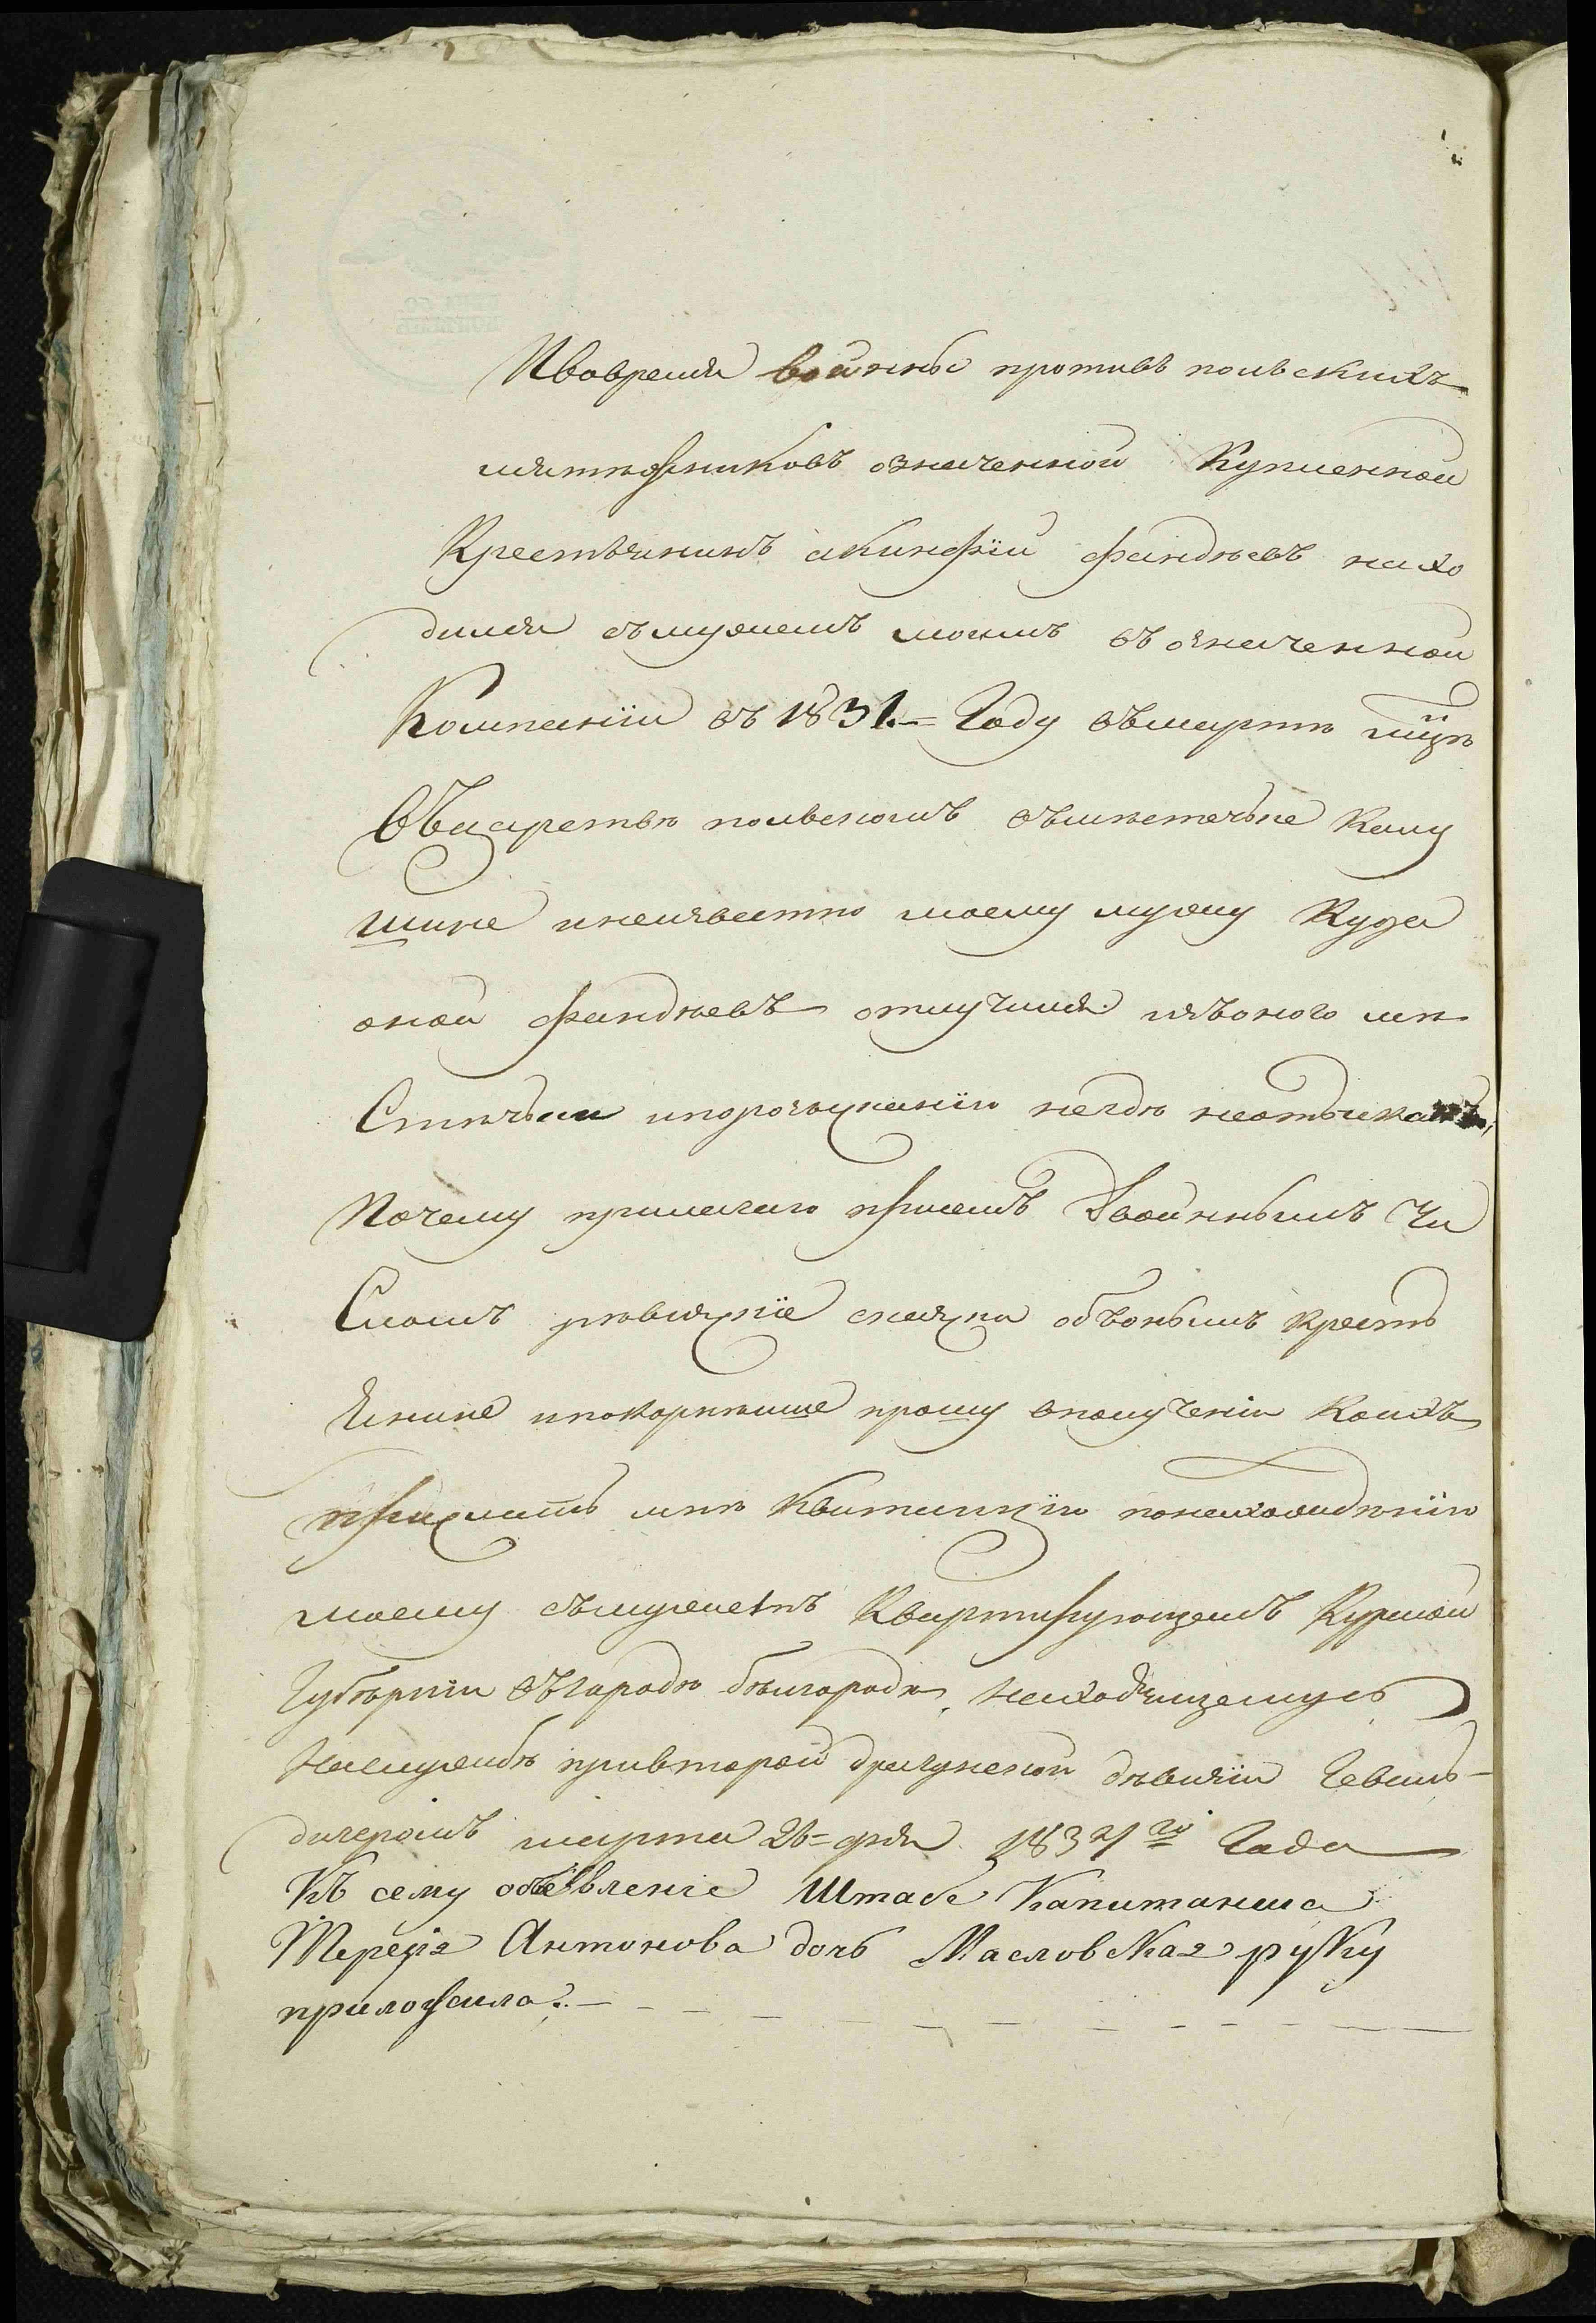 И вовремя войны противъ польскихъ
мятежниковъ означенной Купленной
Крестьянинъ акинфiй фандѣевъ нахо
дился съмужемъ моимъ въ означенной
Компанiи въ 1831.= Году въмартѣ мцѣ
Въцаретвѣ польскомъ въмѣстечке Калу
шине инеизвестно моему мужу Куда
оной фандѣевъ отлучился изъоного мѣ
Стѣчька ипорозысканiю негдѣ неотыскан,
Почему прилагаю присемъ Двойнымъ Чи
Сломъ рѣвизкiе скаски объонымъ кресть
Янине ипокорнѣише прошу ополученiи Коихъ
прислать мнѣ Квитанцiю понахождѣнiю
моему съмужемъ Квартирующемъ Курской
Губѣрнiи въгородѣ бѣлгородѣ, находящемусь
Наслужбѣ привторой драгунской дѣвизiи Геваль-
дигеромъ марта 26= дня 1834 го Года
Къ сему объевленiе Штабс Капитанша
Терезiя Антонова дочь Масловская руку
приложила.